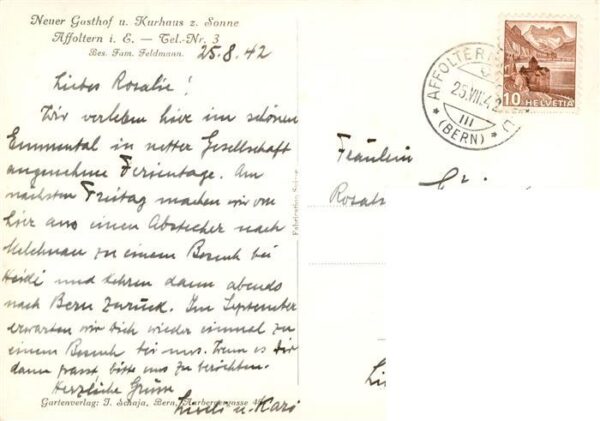 Neuer Gasthof u. Kurhaus z. Sonne
Affoltern i. E. — Tel.-Nr. 3
Bes. Fam. Feldmann.
25.8.42
Liebes Rosalie!
Wir verleben hier im schönen
Emmental in netter Gesellschaft
angenehme Ferientage. Am
nächsten Freitag machen wir von
hier aus einen Abstecher nach
Melchnau zu einem Besuch bei
Heidi und kehren dann abends
nach Bern zurück. Im September
erwarten wir Dich wieder einmal zu
einem Besuch bei uns. Wenn es Dir
dann passt, bitte uns zu berichten.
Herzliche Grüsse
u. Karl
Gartenverlag: J. Schaja, Bern, Aarbergergasse
Fabrication Suisse
AFFOLTERN
25.VIII.42
III
(BERN)
10 HELVETIA
Fräulein